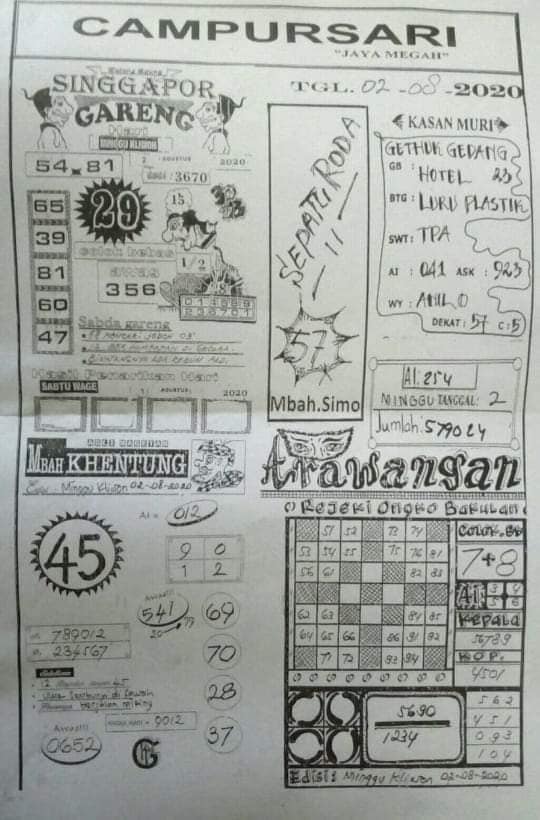 CAMPURSARI
"JAYA MEGAH"
SINGGAPOR
GARENG
Hari
MINGGU KLIWON
2 AGUSTUS 2020
54.81
3670
65
39
81
60
47
29
15
colok bebas
1/2
awas
356
Sabda gareng
Hasil Penarikan Hari
SABTU WAGE
1 AGUSTUS: 2020
TGL. 02-08-2020
SEPATU RODA
11
57
Mbah.Simo
KASAN MURI
GETHUK GEDANG
GB : HOTEL 23
BTG : LURU PLASTIK
SWT : TPA
AI : 041 ASK : 923
WY : ANIL O
DEKAT : 57 C:5
AI: 254
MINGGU TANGGAL: 2
Jumlah: 579024
ASLI MAGETAN
MBAH KHENTUNG
Minggu Kliwon 02-08-2020
AI = 012
45
9 0
1 2
541
20
69
70
28
37
789012
234567
Awas!!!
0652
ANGKA MATI = 0012
Arawangan
Rejeki Ongko Bakulan
51 52 73 74
53 54 55 75 76 81
56 61 82 83
62 63 84 85
64 65 66 86 91 92
71 72 93 94
COLOK.BB
7+8
AI
3 4
5 6
KEPALA
56789
KOP.
4501
5690
1234
562
451
093
104
Edisi: Minggu Kliwon 02-08-2020